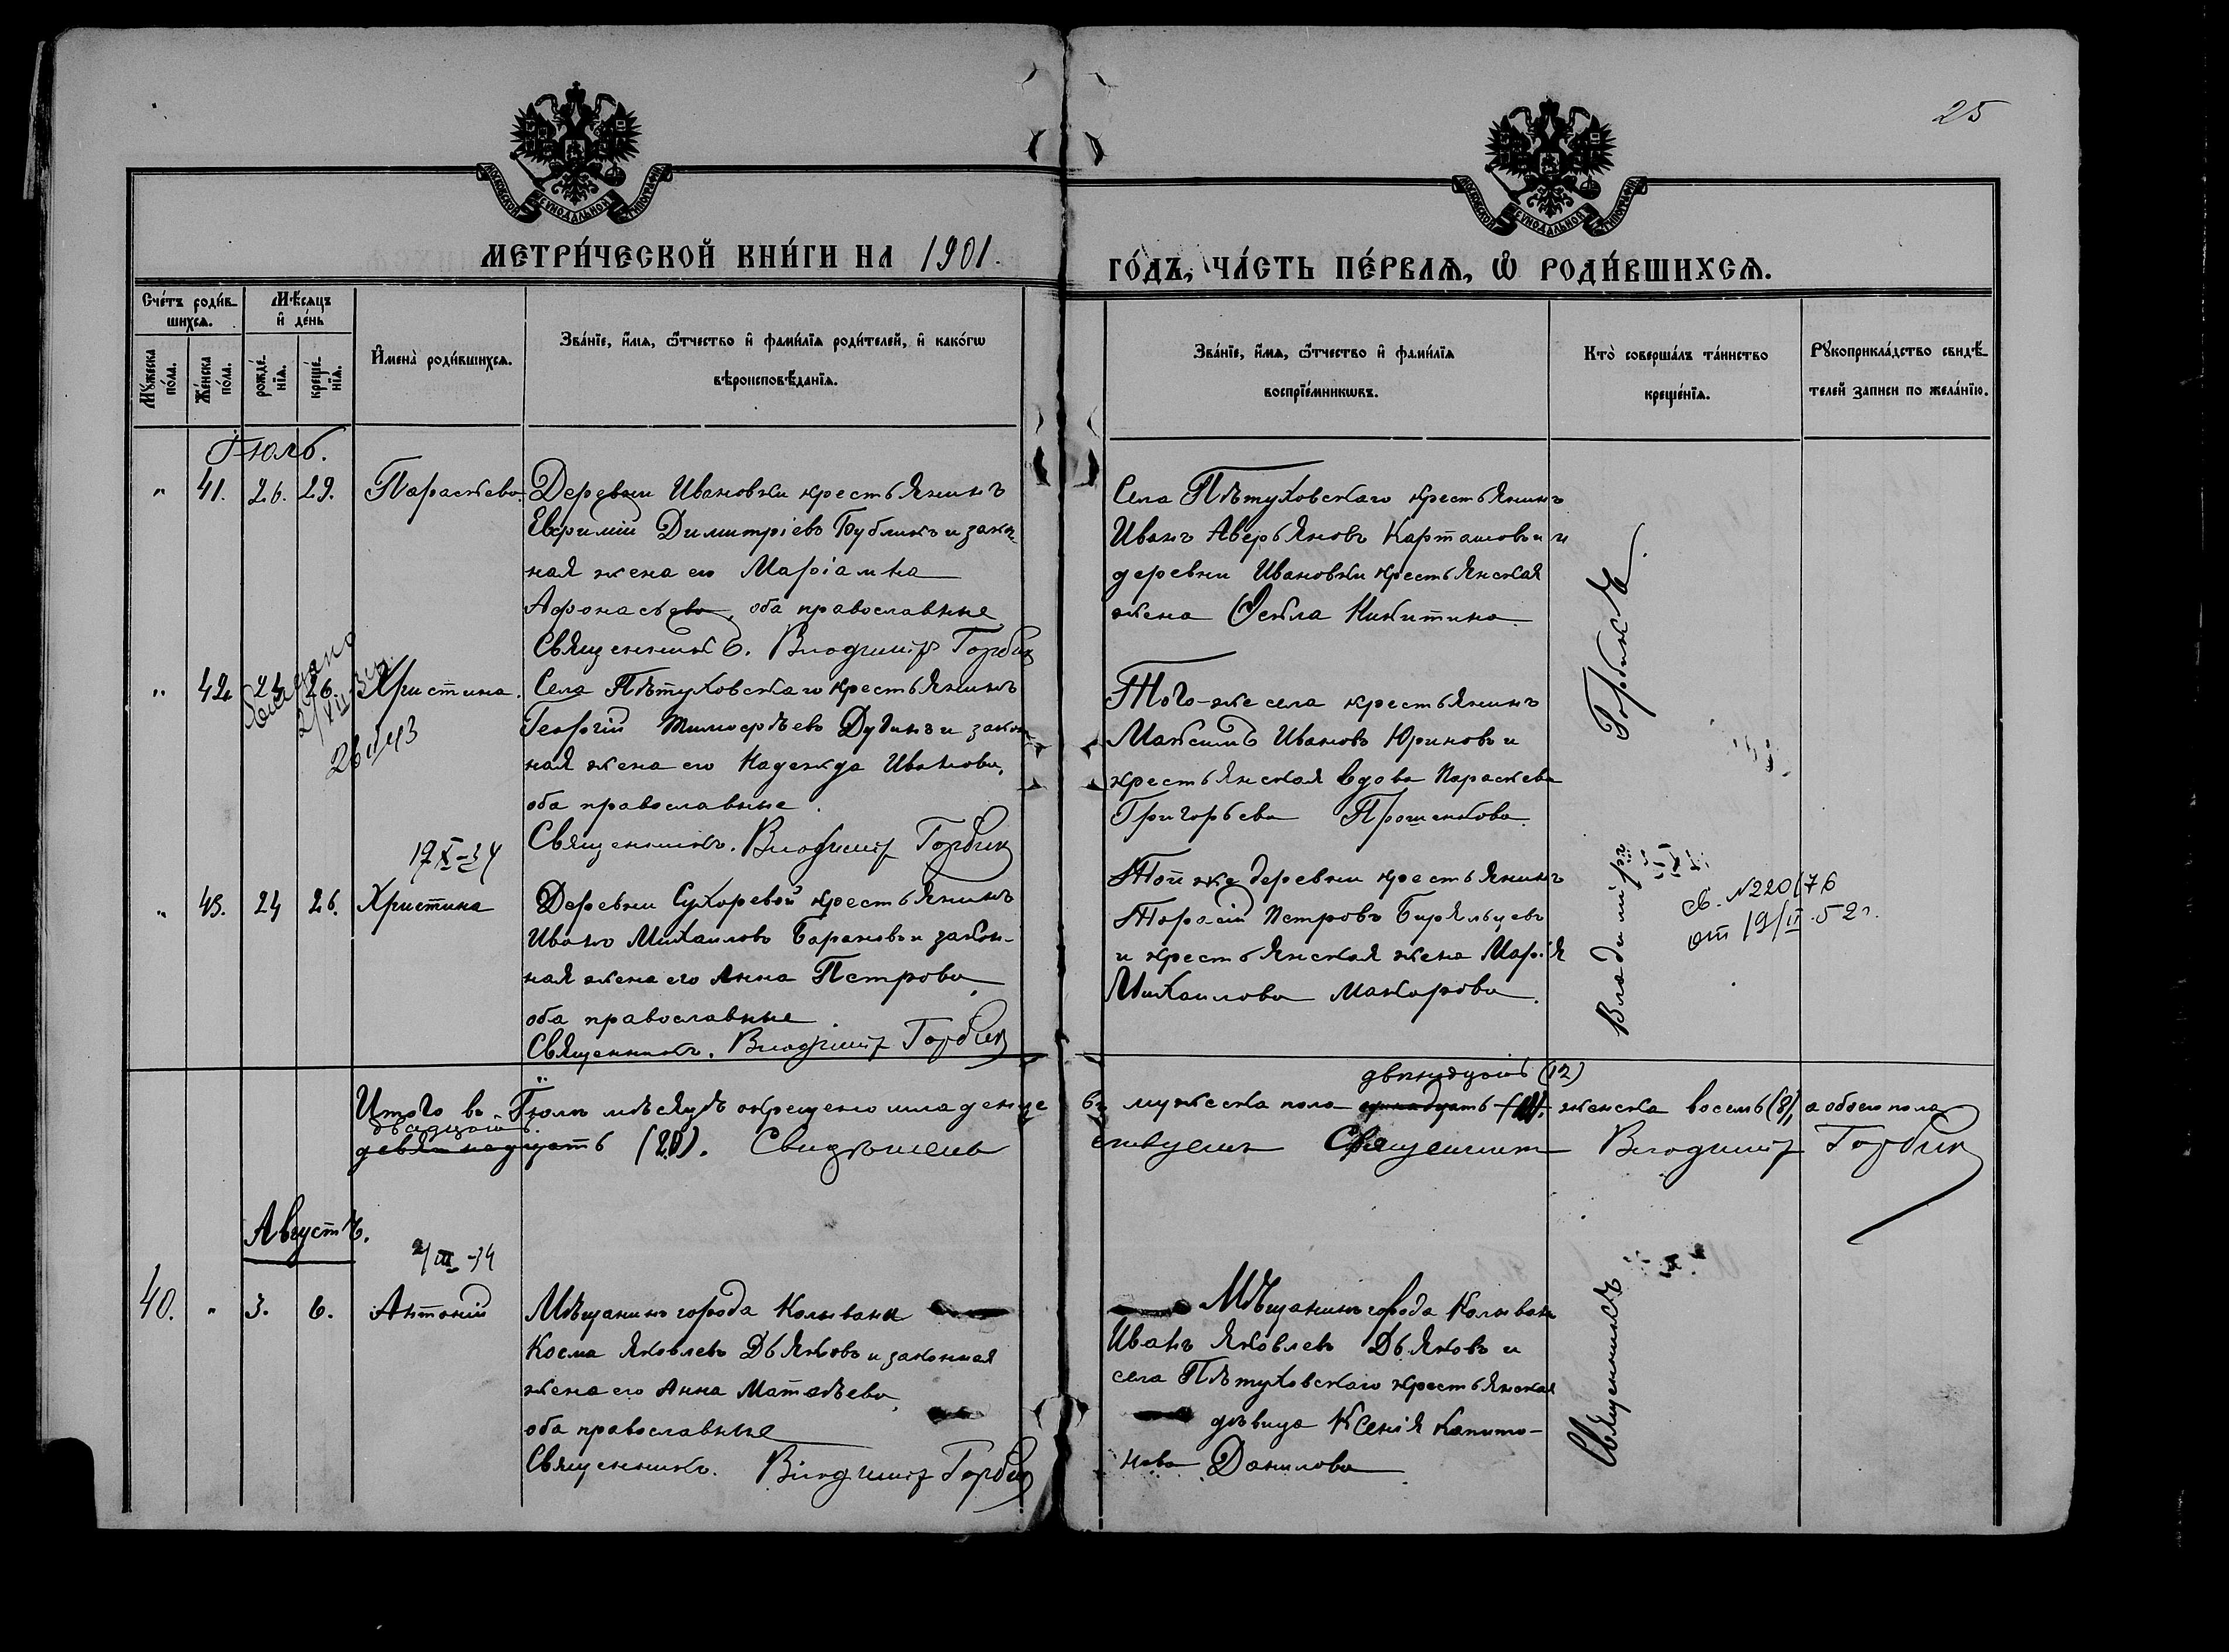 25
МОСКОВСКОЙ СѴНОДАЛЬНОЙ ТИПОГРАФІИ
МОСКОВСКОЙ СѴНОДАЛЬНОЙ ТИПОГРАФІИ
МЕТРИ́ЧЕСКОЙ КНИ́ГИ НА 1901.
ГО́ДЪ, ЧА́СТЬ ПЕ́РВАѦ, Ѡ҆ РОДИ́ВШИХСѦ.
Сче́тъ роди́в-
шихсѧ.
Мѣ́сѧцъ
и҆ де́нь
Мꙋ́жеска
по́ла.
Же́нска
по́ла.
рожде́-
нїѧ.
креще́-
нїѧ.
И҆мена̀ роди́вшихсѧ.
Зва́нїе, и҆́мѧ, ѻ҆́тчество и҆ фами́лїѧ роди́телей, и҆ како́гѡ
вѣроисповѣ́данїѧ.
Зва́нїе, и҆́мѧ, ѻ҆́тчество и҆ фами́лїѧ
воспрїе́мникѡвъ.
Кто̀ соверша́лъ та́инство
креще́нїѧ.
Рꙋкоприкла́дство свидѣ́-
телей записи по жела́нїю.
Іюль.
" 41. 26. 29. Параскева Деревни Ивановки крестьянинъ
Евфимій Димитріевъ Бубликъ и закон-
ная жена его Маріамна
Афонасьева, оба православные
Священникъ. Владимір Горбик
Села Пѣтуховскаго крестьянинъ
Иванъ Аверьяновъ Карташовъ и
деревни Ивановки крестьянская
жена Фекла Никитина
" 42. 24 26. Христина. Села Пѣтуховскаго крестьянинъ
Георгій Тимофѣевъ Дубинъ и закон-
ная жена его Надежда Иванова,
оба православные
Священникъ. Владимір Горбик
Того-же села крестьянинъ
Максимъ Ивановъ Юриновъ и
крестьянская вдова Параскева
Григорьева Прошенкова
17 X-34
" 43. 24 26. Христина Деревни Сухоревой крестьянинъ
Иванъ Михаиловъ Барановъ и закон-
ная жена его Анна Петрова
оба православные
Священникъ. Владимір Горбик
Той же деревни крестьянинъ
Тарасій Петровъ Биряльцевъ
и крестьянская жена Марія
Михаилова Макарова.
Священникъ Владиміръ Горбикъ.
св. №220176
от 19/II-52г.
двѣнадцать (12)
Итого въ Іюлѣ мѣсяцѣ окрещено младенце
въ мужеска пола женска восемь (8), а обоего пола
двадцать
девятнадцать (20). Свидѣтель
ствуемъ Священникъ Владимір Горбик
Августъ.
2/III-34
40. " 3. 6. Антоній Мѣщанинъ города Колывани
Косма Яковлевъ Дьяковъ и законная
жена его Анна Матѳѣева,
оба православные
Священникъ. Владимір Горбик
Мѣщанинъ города Колывани
Иванъ Яковлевъ Дьяковъ и
села Пѣтуховскаго крестьянская
дѣвица Ксенія Капито-
нова Данилова